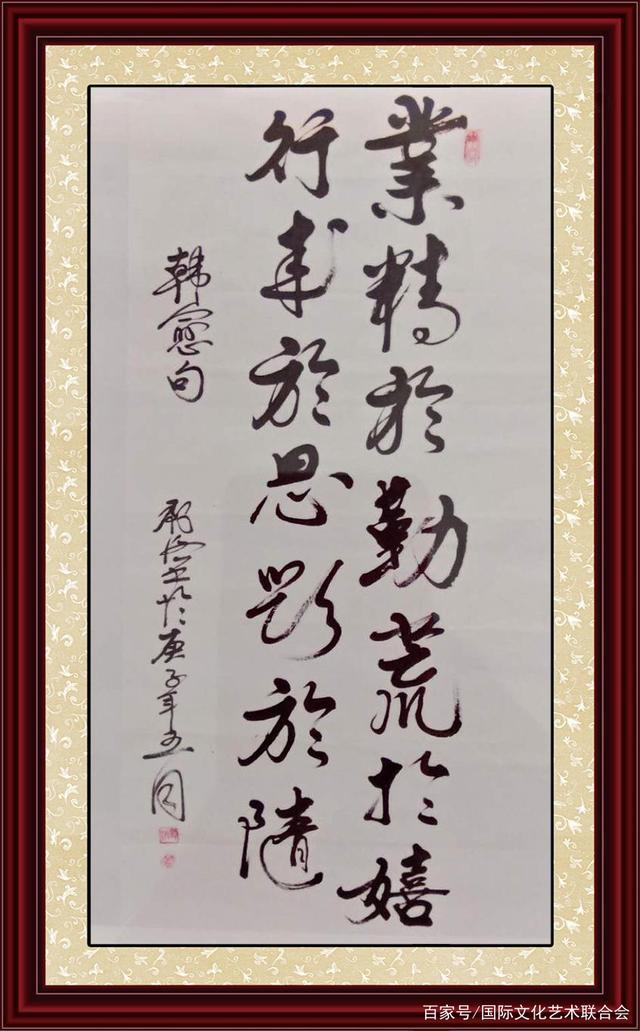 業精於勤荒於嬉
行成於思毁於隨
韩愈句
於庚子年五月
百家号/国际文化艺术联合会